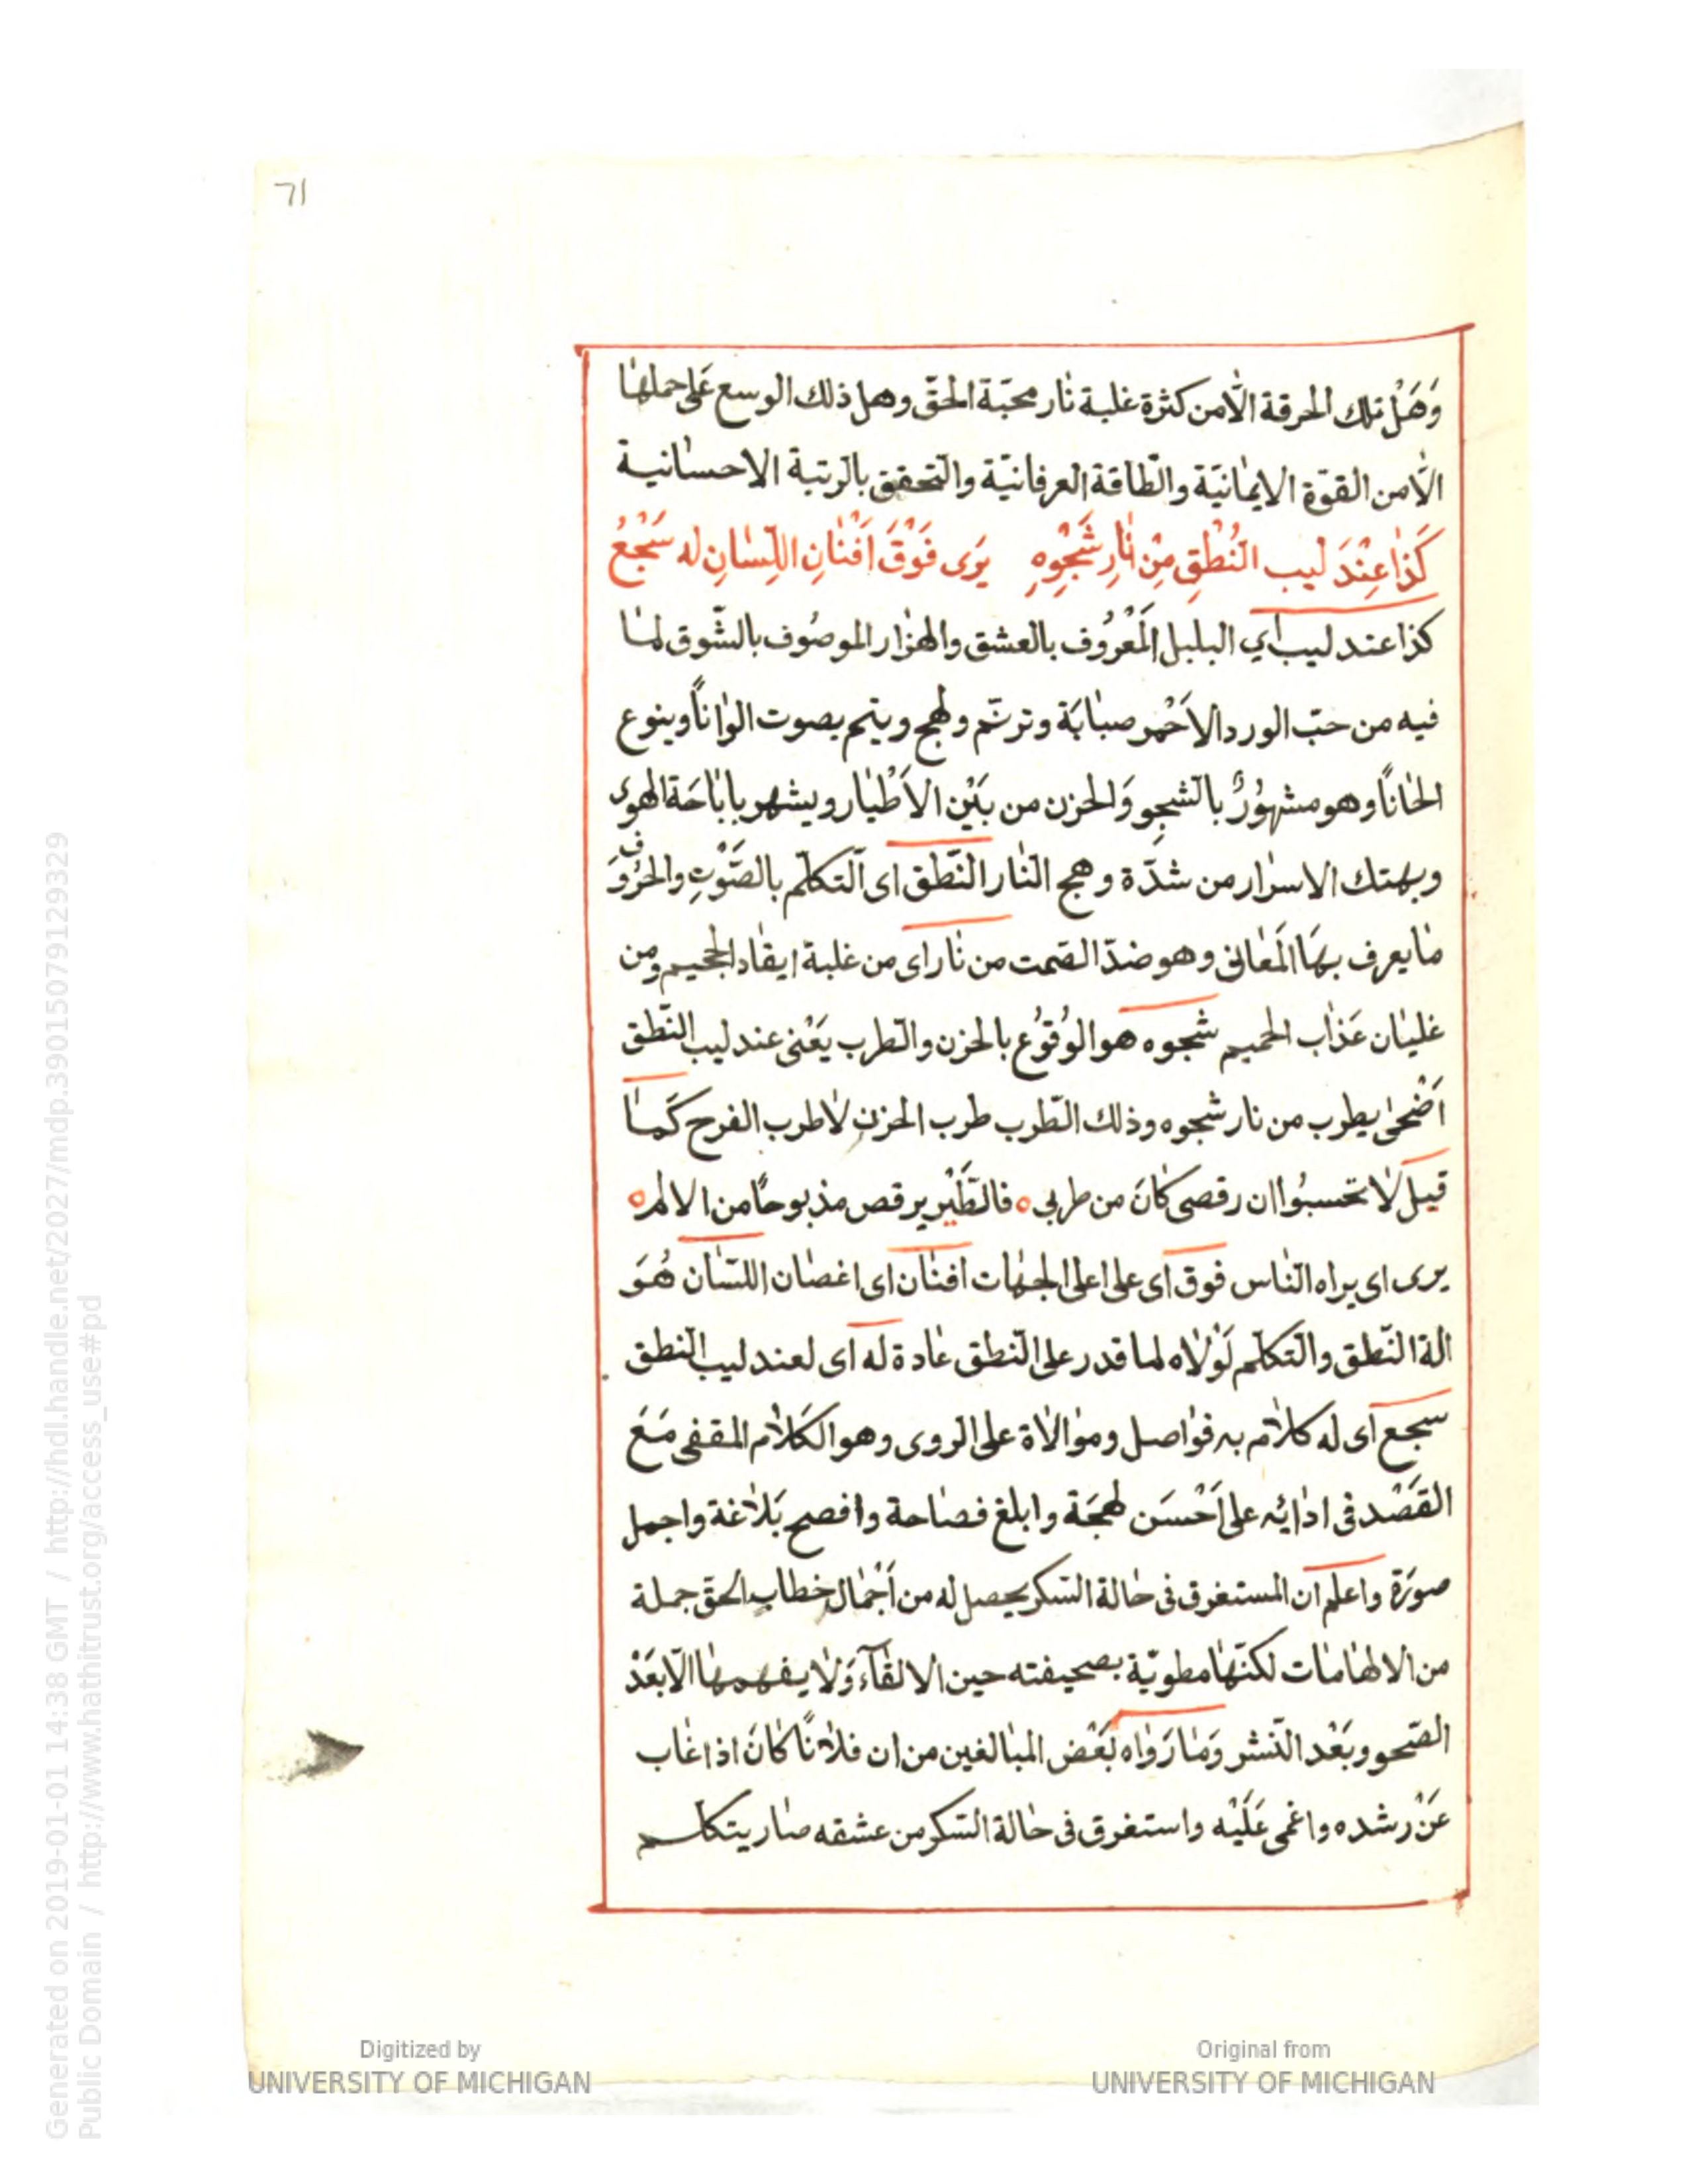 71
وَهَلْ تلك الحرقة الّامن كثرة غلبة نار محبّة الحقّ وهل ذلك الوسع على حملها
الّامن القوّة الايمانيّة والطّاقة العرفانيّة والتّحقق بالرّتبة الاحسانية
كَذَا عِنْدَ لِيب النُطْقِ مِنْ نَارِ شَجْوِهِ يَرى فَوْقَ اَفْنَانِ اللِّسَانِ له سَجْعُ
كذا عندليب اي البلبل المَعْرُوف بالعشق والهزار الموصُوف بالشّوق لما
فيه من حبّ الورد الاَحْمر صبابَة وترنّم ولهج ويتم بصوت الواناً وينوع
الحاناً وهو مشهُورٌ بالشجو وَالحزن من بَيْن الاَطْيار ويشهر باباحَة الهوى
وبهتك الاسرار من شدّة وهج النار النّطق اى التكلّم بالصَّوْتِ والحرُوف
ما يعرف بهَا المَعانى وهو ضدّ الصّمت من نار اى من غلبة ايقاد الجحيم ومن
غليان عَذاب الحميم شجوه هو الوُقوُع بالحزن والطّرب يَعْنى عندليب النّطق
اَضْحى يطرب من نار شجوه وذلك الطّرب طرب الحزن لاطرب الفرح كَما
قيل لا تحسبُوا ان رقصى كانَ من طربى ه فالطَّيْر يرقص مذبوحًا من الالم ه
يرى اى يراه النّاس فوق اى على اعلى الجهات افنان اى اغصان اللسّان هُوَ
الة النّطق والتّكلّم لَوْلاه لما قدر على النّطق عادة له اى لعندليب النّطق
سجع اى له كلام به فواصل وموالاة على الرّوى وهو الكَلام المقفى مَعَ
القَصْد فى ادائه على اَحْسَن لهجَة وابلغ فصاحة وافصح بَلاغة واجمل
صورَة واعلم ان المستغرق فى حالة السّكر يحصل له من اَجْمال خطاب الحقّ جملة
من الالهامات لكنّها مطويّة بصحيفته حين الالقآء وَلا يفهمها الّا بعَدْ
الصّحو وبَعْد النّشر وَما رَواه بَعْض المبالغين من ان فلاناً كانَ اذا غاب
عَنْ رشده واغمى عَلَيْه واستغرق فى حالة السّكر من عشقه صار يتكلم
Digitized by
UNIVERSITY OF MICHIGAN
Original from
UNIVERSITY OF MICHIGAN
Generated on 2019-01-01 14:38 GMT / http://hdl.handle.net/2027/mdp.39015079129329
Public Domain / http://www.hathitrust.org/access_use#pd